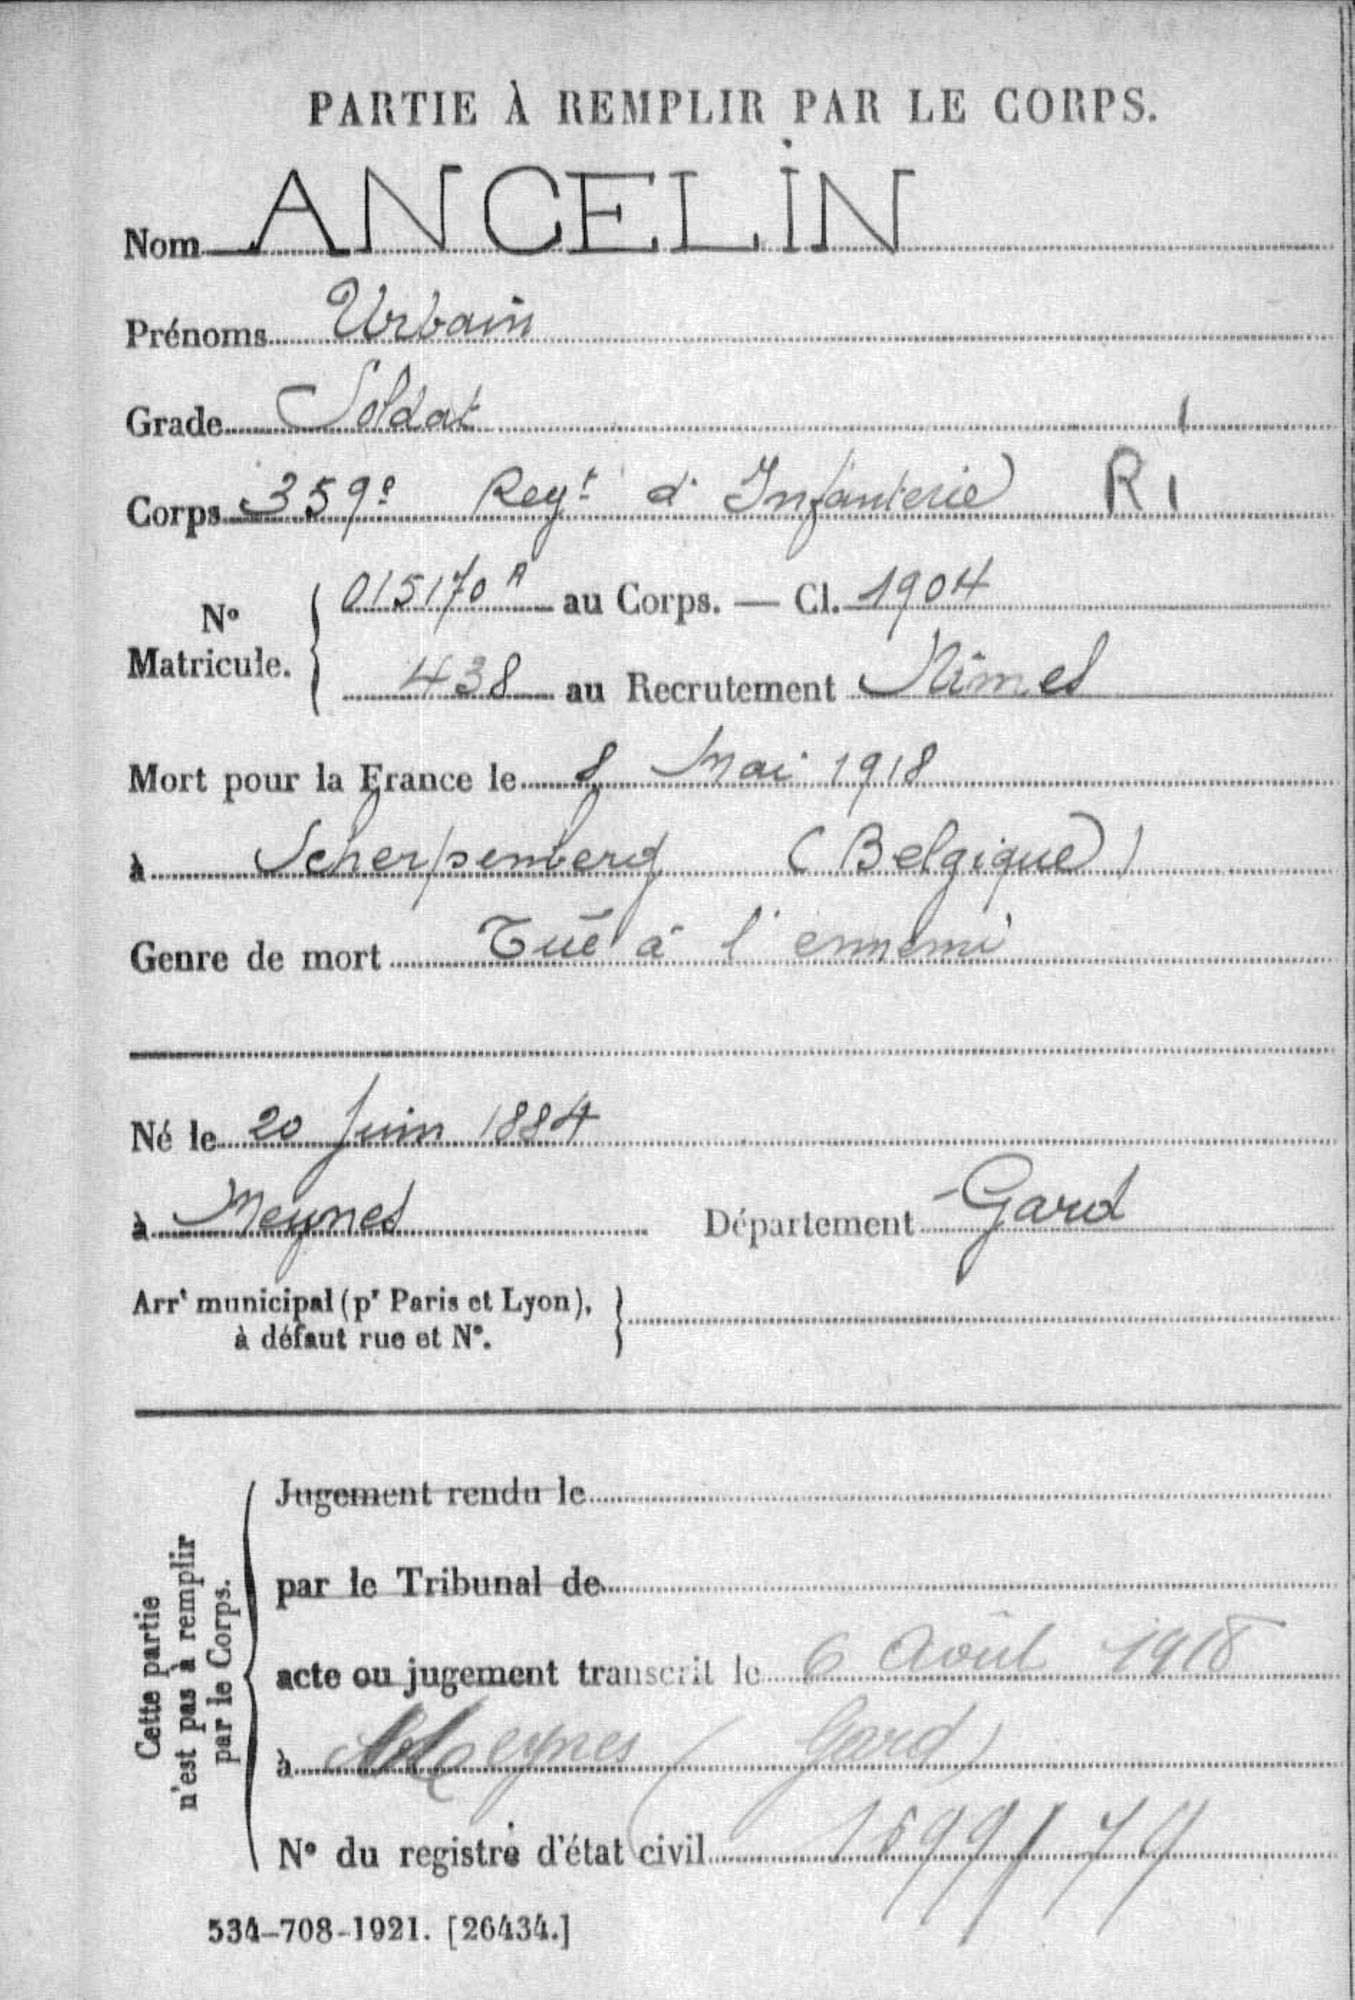 PARTIE À REMPLIR PAR LE CORPS.
Nom ANCELIN
Prénoms Urbain
Grade Soldat
Corps 359e Regt d'Infanterie RI
No Matricule. { 015170 A au Corps. — Cl. 1904
438 au Recrutement Nîmes
Mort pour la France le 8 Mai 1918
à Scherpenberg (Belgique)
Genre de mort Tué à l'ennemi
Né le 20 Juin 1884
à Meynes Département Gard
Arrt municipal (pr Paris et Lyon),
à défaut rue et No. }
Cette partie
n'est pas à remplir
par le Corps.
Jugement rendu le
par le Tribunal de
acte ou jugement transcrit le 6 Août 1918
à Meynes (Gard)
No du registre d'état civil
534-708-1921. [26434.]